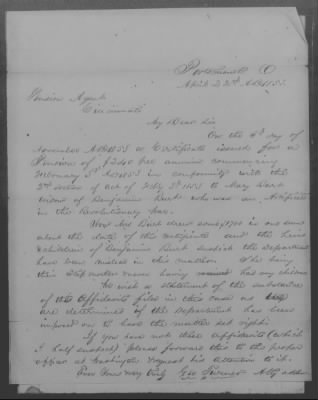 Portsmouth O
April 22nd AD 1855.
Pension Agent
Cincinnati
My Dear Sir
On the 9th day of
November AD 1853 a Certificate issued for a
Pension of $240 per annum commencing
February 3d AD 1853 in conformity with the
2nd section of act of Feby 3d 1853 to Mary Burt
widow of Benjamin Burt who was an Artificer
in the Revolutionary War.
Now Mrs Burt drew some $700 in one sum
about the date of the Certificate and the heirs
& children of Benjamin Burt the department
have been misled in this matter. She being
their Step mother never having had any children
We wish a statement of the substance
of the affidavits filed in this case as
are determined if the department has been
imposed on to have the matter set right.
If you have not these affidavits (which
I half suspect) please forward this to the proper
officer at Washington & request his attention to it.
Your Very Truly Geo Turner Atty